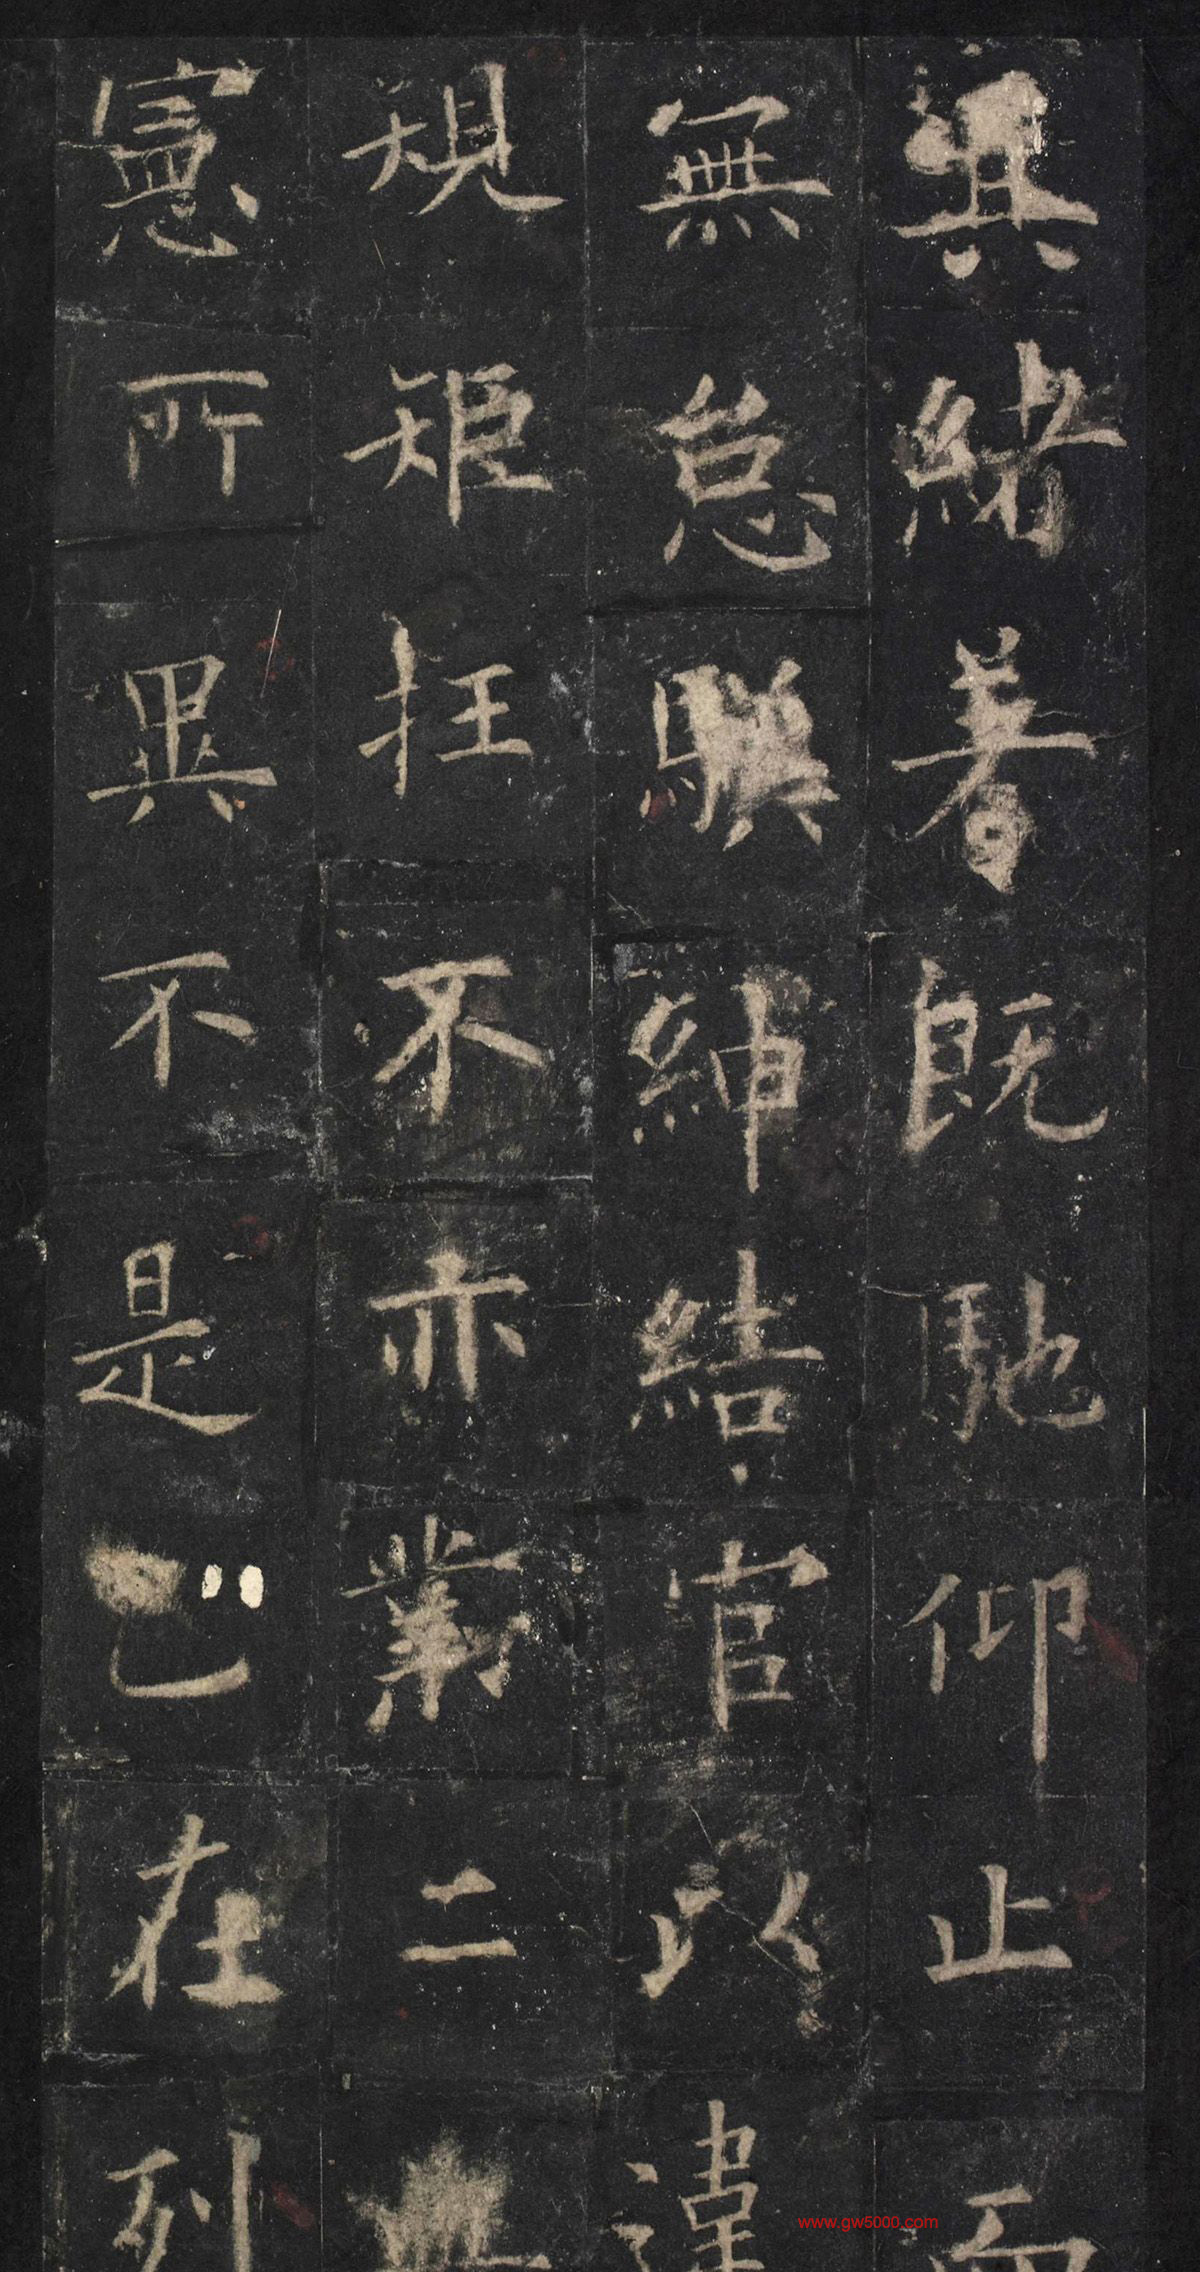 緒著既馳仰止而
無怠紳結官以違
規矩抂不亦二
憲所異不是在列
www.gw5000.com